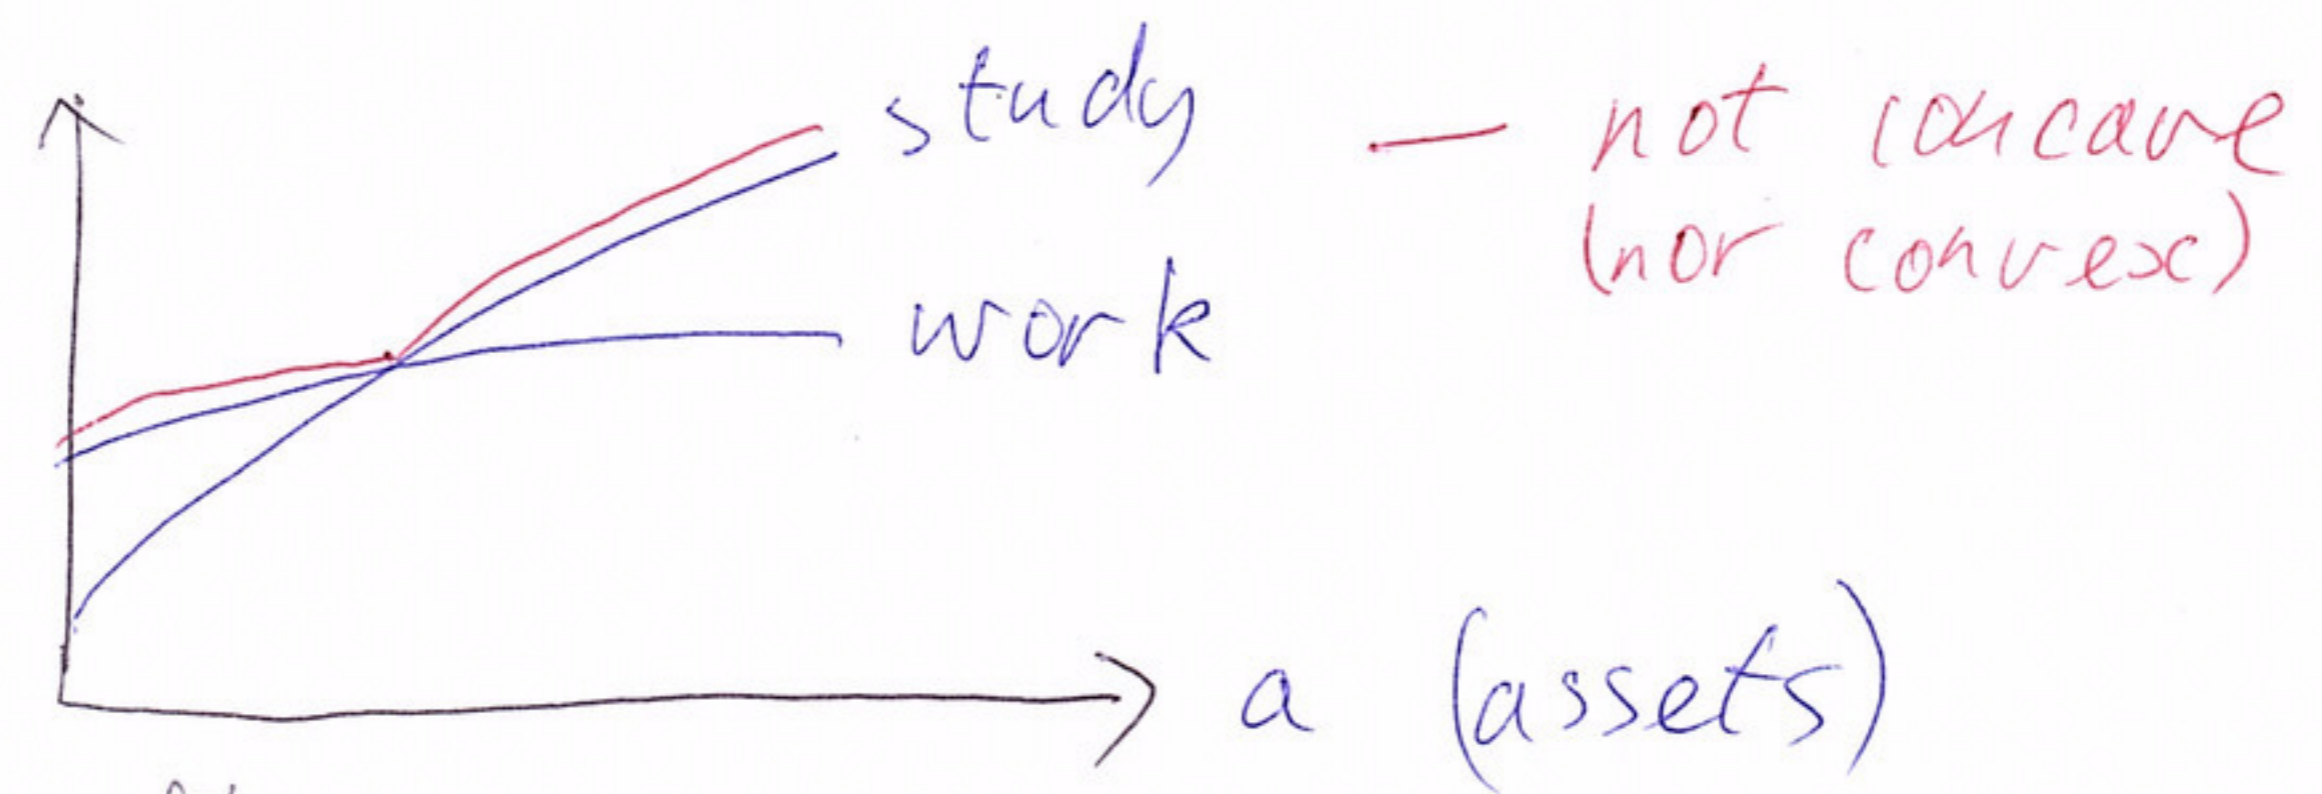 study
not concave
(nor convex)
work
a (assets)